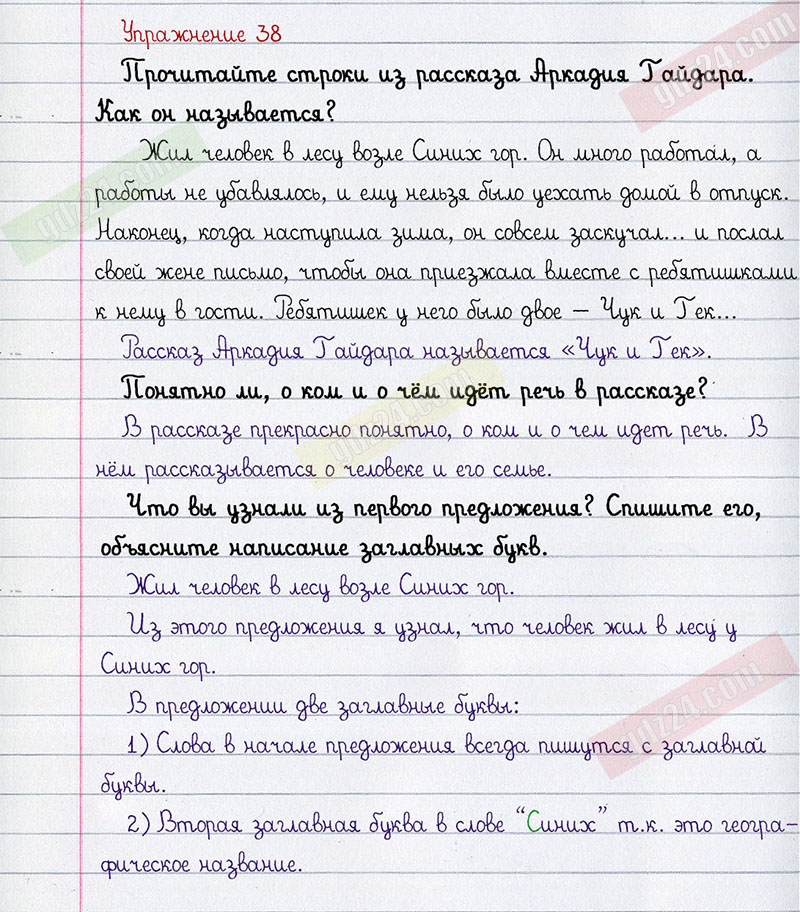 Упражнение 38
Прочитайте строки из рассказа Аркадия Гайдара.
Как он называется?
Жил человек в лесу возле Синих гор. Он много работал, а
работы не убавлялось, и ему нельзя было уехать домой в отпуск.
Наконец, когда наступила зима, он совсем заскучал... и послал
своей жене письмо, чтобы она приезжала вместе с ребятишками
к нему в гости. Ребятишек у него было двое – Чук и Гек...
Рассказ Аркадия Гайдара называется «Чук и Гек».
Понятно ли, о ком и о чём идёт речь в рассказе?
В рассказе прекрасно понятно, о ком и о чем идет речь. В
нём рассказывается о человеке и его семье.
Что вы узнали из первого предложения? Спишите его,
объясните написание заглавных букв.
Жил человек в лесу возле Синих гор.
Из этого предложения я узнал, что человек жил в лесу у
Синих гор.
В предложении две заглавные буквы:
1) Слова в начале предложения всегда пишутся с заглавной
буквы.
2) Вторая заглавная буква в слове “Синих” т.к. это геогра-
фическое название.
gdz24.com
gdz24.com
gdz24.com
gdz24.com